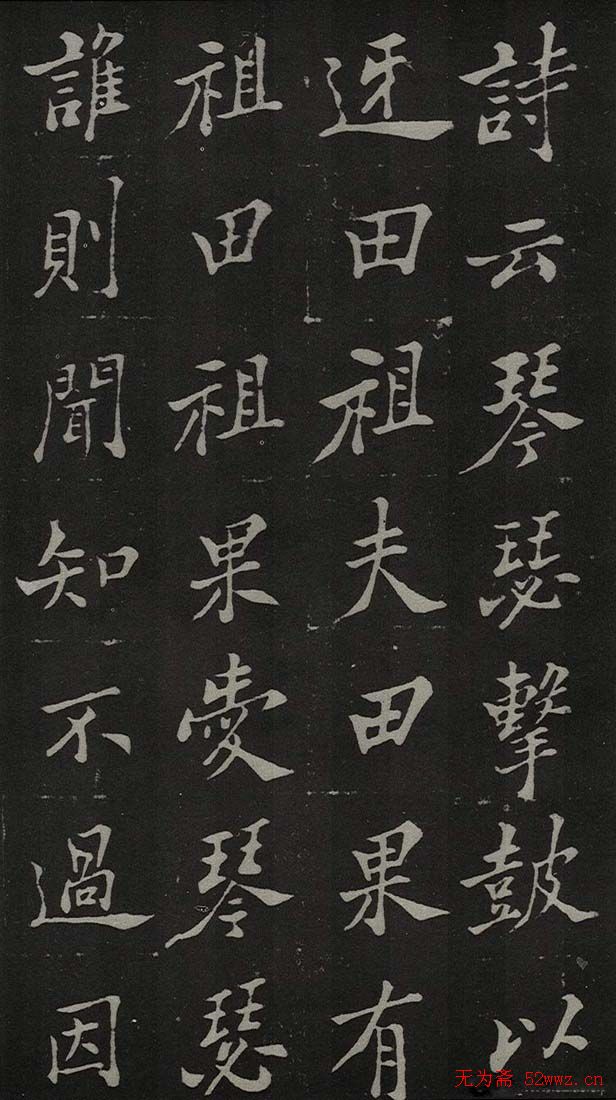 詩云琴瑟擊鼓以
迓田祖夫田果有
祖田祖果愛琴瑟
誰則聞知不過因
无为斋 52wwz.cn